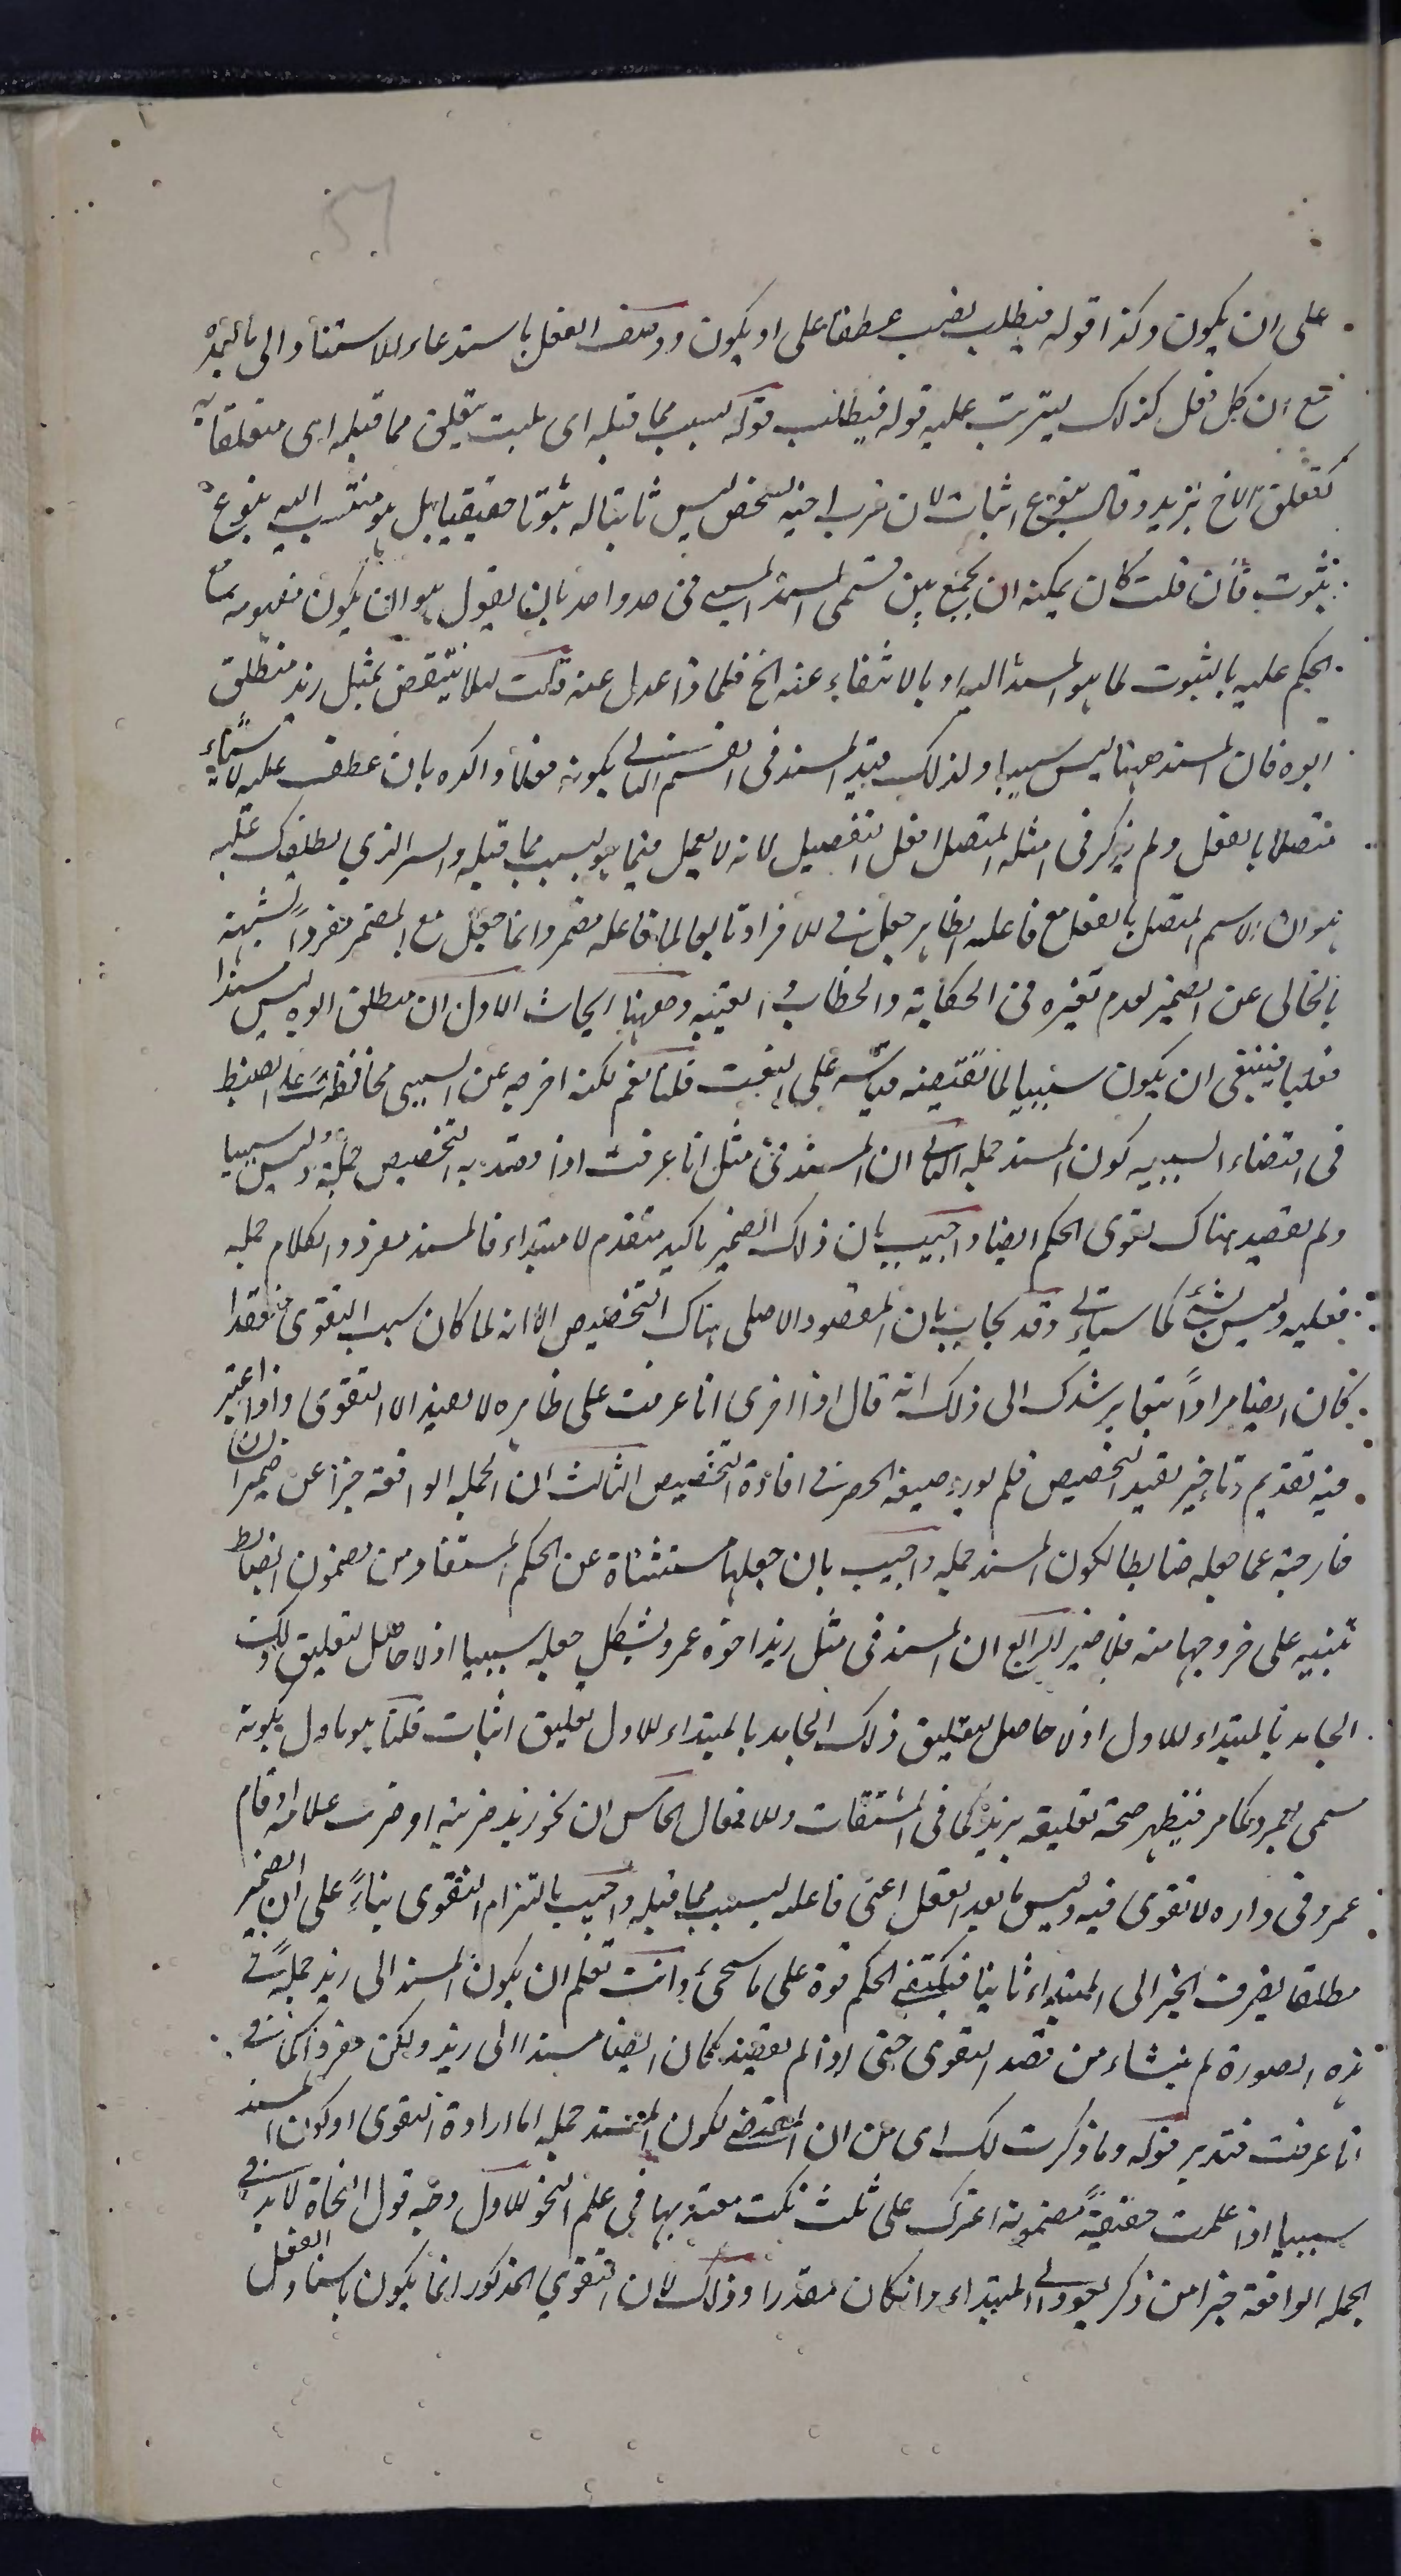 على ان يكون وكذا قوله فيطلب نصب عطفا على او يكون ووصف الفعل باستدعاء الاستناد الى ما بعده
مع ان كل فعل كذلك ليترتب عليه قوله فيطلب قوله بسبب مما قبله اى ملتبس بتعلق مما قبله اى متعلقا به
كتعلق الاخ بزيد وقال بنوع اثبات لان ضرب اخيه لشخص ليس ثابتا له ثبوتا حقيقيا بل هو منتسب اليه بنوع
ثبوت فان قلت كان يمكنه ان يجمع بين قسمى المسند السببى فى حد واحد بان يقول هو ان يكون مفهومه مع
الحكم عليه بالثبوت لما هو المسند اليه او بالانتفاء عنه الخ فلماذا عدل عنه قلت لئلا ينتقض بمثل زيد منطلق
ابوه فان المسند ههنا ليس سببيا ولذلك قيد المسند فى القسم الثانى بكونه فعلا واكده بان عطف عليه
متصلا بالفعل ولم يذكر فى امثلة المتصل افعل التفضيل لانه لا يعمل فيما هو بسبب مما قبله والسر الذي يطلعك عليه
هو ان الاسم المتصل بالفعل مع فاعله الظاهر جعل فى الافراد تابعا لما فاعله مضمر وانما جعل مع المضمر مفردا لشبهه
بالخالى عن الضمير لعدم تغيره فى الحكاية والخطاب والغيبة وههنا ابحاث الاول ان منطلق ابوه ليس مسندا
فعليا فينبغى ان يكون سببيا لما تقتضيه قياسه على النعت قلنا نعم لكنه اخرجه عن السببى محافظة على الضبط
فى اقتضاء السببيه كون المسند جمله الثانى ان المسند فى مثل انا عرفت اذا قصد به التخصيص جملة وليس سببيا
ولم يقصد هناك تقوى الحكم ايضا واجيب بان ذلك الضمير تاكيد متقدم لا مبتداء فالمسند مفرد والكلام جمله
فعليه وليس بشئ كما سيأتى وقد يجاب بان المقصود الاصلى هناك التخصيص الا انه لما كان سبب التقوى
كان ايضا مرادا تبعا يرشدك الى ذلك انه قال اذا اجرى انا عرفت على ظاهره لا يفيد الا التقوى واذا اعتبر
فيه تقديم وتاخير يفيد التخصيص فلم يورد صيغة الحصر فى افادة التخصيص الثالث ان الجمله الواقعة خبرا عن ضمير الشان
خارجة عما جعله ضابطا لكون المسند جمله واجيب بان جعلها مستثناة عن الحكم المستفاد من مضمون الضابط
تنبيه على خروجها منه فلا ضير الرابع ان المسند فى مثل زيد اخوه عمرو يشكل جعله سببيا اذ لا حاصل لتعليق ذلك
الجامد بالمبتداء للاول اذ لا حاصل لتعليق ذلك الجامد بالمبتداء للاول تعليق اثبات قلنا هو ماول بكونه
مسمى بعمرو كما مر فيظهر صحة تعليقه بزيد كما فى المشتقات وللافعال الخامس ان نحو زيد ضربته او ضرب غلامه او قام
عمرو فى داره لا تقوى فيه وليس ما بعد الفعل اعنى فاعله بسبب مما قبله واجيب بالتزام التقوى بناءً على ان الضمير
مطلقا يصرف الخبر الى المبتداء ثانيا فيكتفى الحكم قوة على ما سيجىء وانت تعلم ان يكون المسند الى زيد جملة فى
هذه الصورة لم ينشاء من قصد التقوى حتى اذا لم يقصد لكان ايضا مسندا الى زيد ولكن مفردا كما فى
انا عرفت فتدبر قوله وما ذكرت لك اى من ان المقتضى لكون المسند جمله اما ارادة التقوى او كون المسند
سببيا اذا علمت حقيقة مضمونه اعثرك على ثلث نكت معتد بها فى علم النحو الاول وجه قول النحاة لا بد فى
الجمله الواقعة خبرا من ذكر يعود الى المبتداء وان كان مقدرا وذلك لان التقوي المذكور انما يكون باسناد الفعل